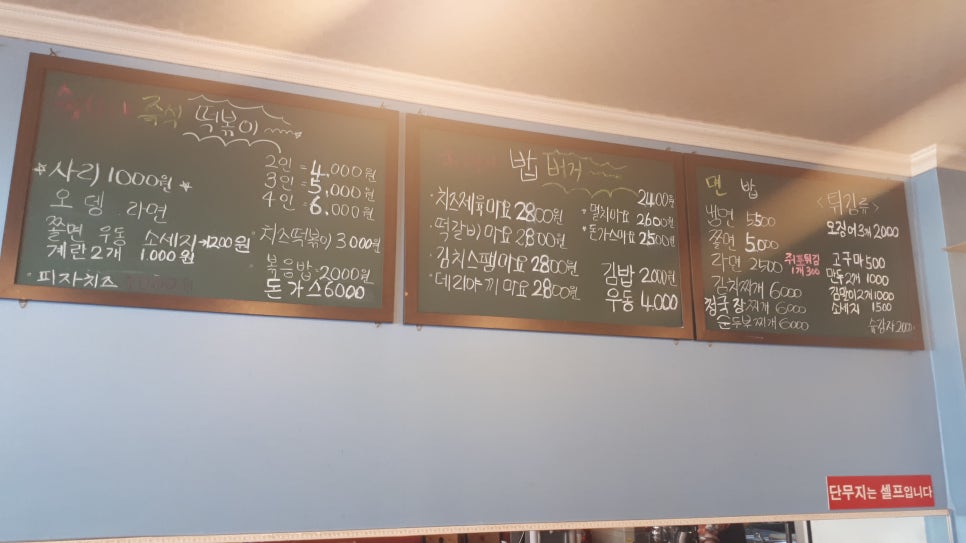 즉석 떡볶이
★사리 1000원★
오뎅 라면
쫄면 우동 소세지→1200원
계란2개 1000원
피자치즈
2인 = 4,000원
3인 = 5,000원
4인 = 6,000원
치즈떡볶이 3000원
볶음밥 2000원
돈가스 6000
밥버거
치즈제육마요 2800원
떡갈비마요 2800원
김치스팸마요 2800원
데리야끼마요 2800원
2400원
멸치마요 2600원
돈가스마요 2500원
김밥 2000원
우동 4,000
면 밥
냉면 5500
쫄면 5000
라면 2500
김치찌개 6000
청국장찌개 6000
순두부찌개 6000
<튀김류>
오징어3개 2000
고구마 500
만두2개 1000
김말이2개 1000
소세지 1500
1개 300
슬감자 2000
단무지는 셀프입니다